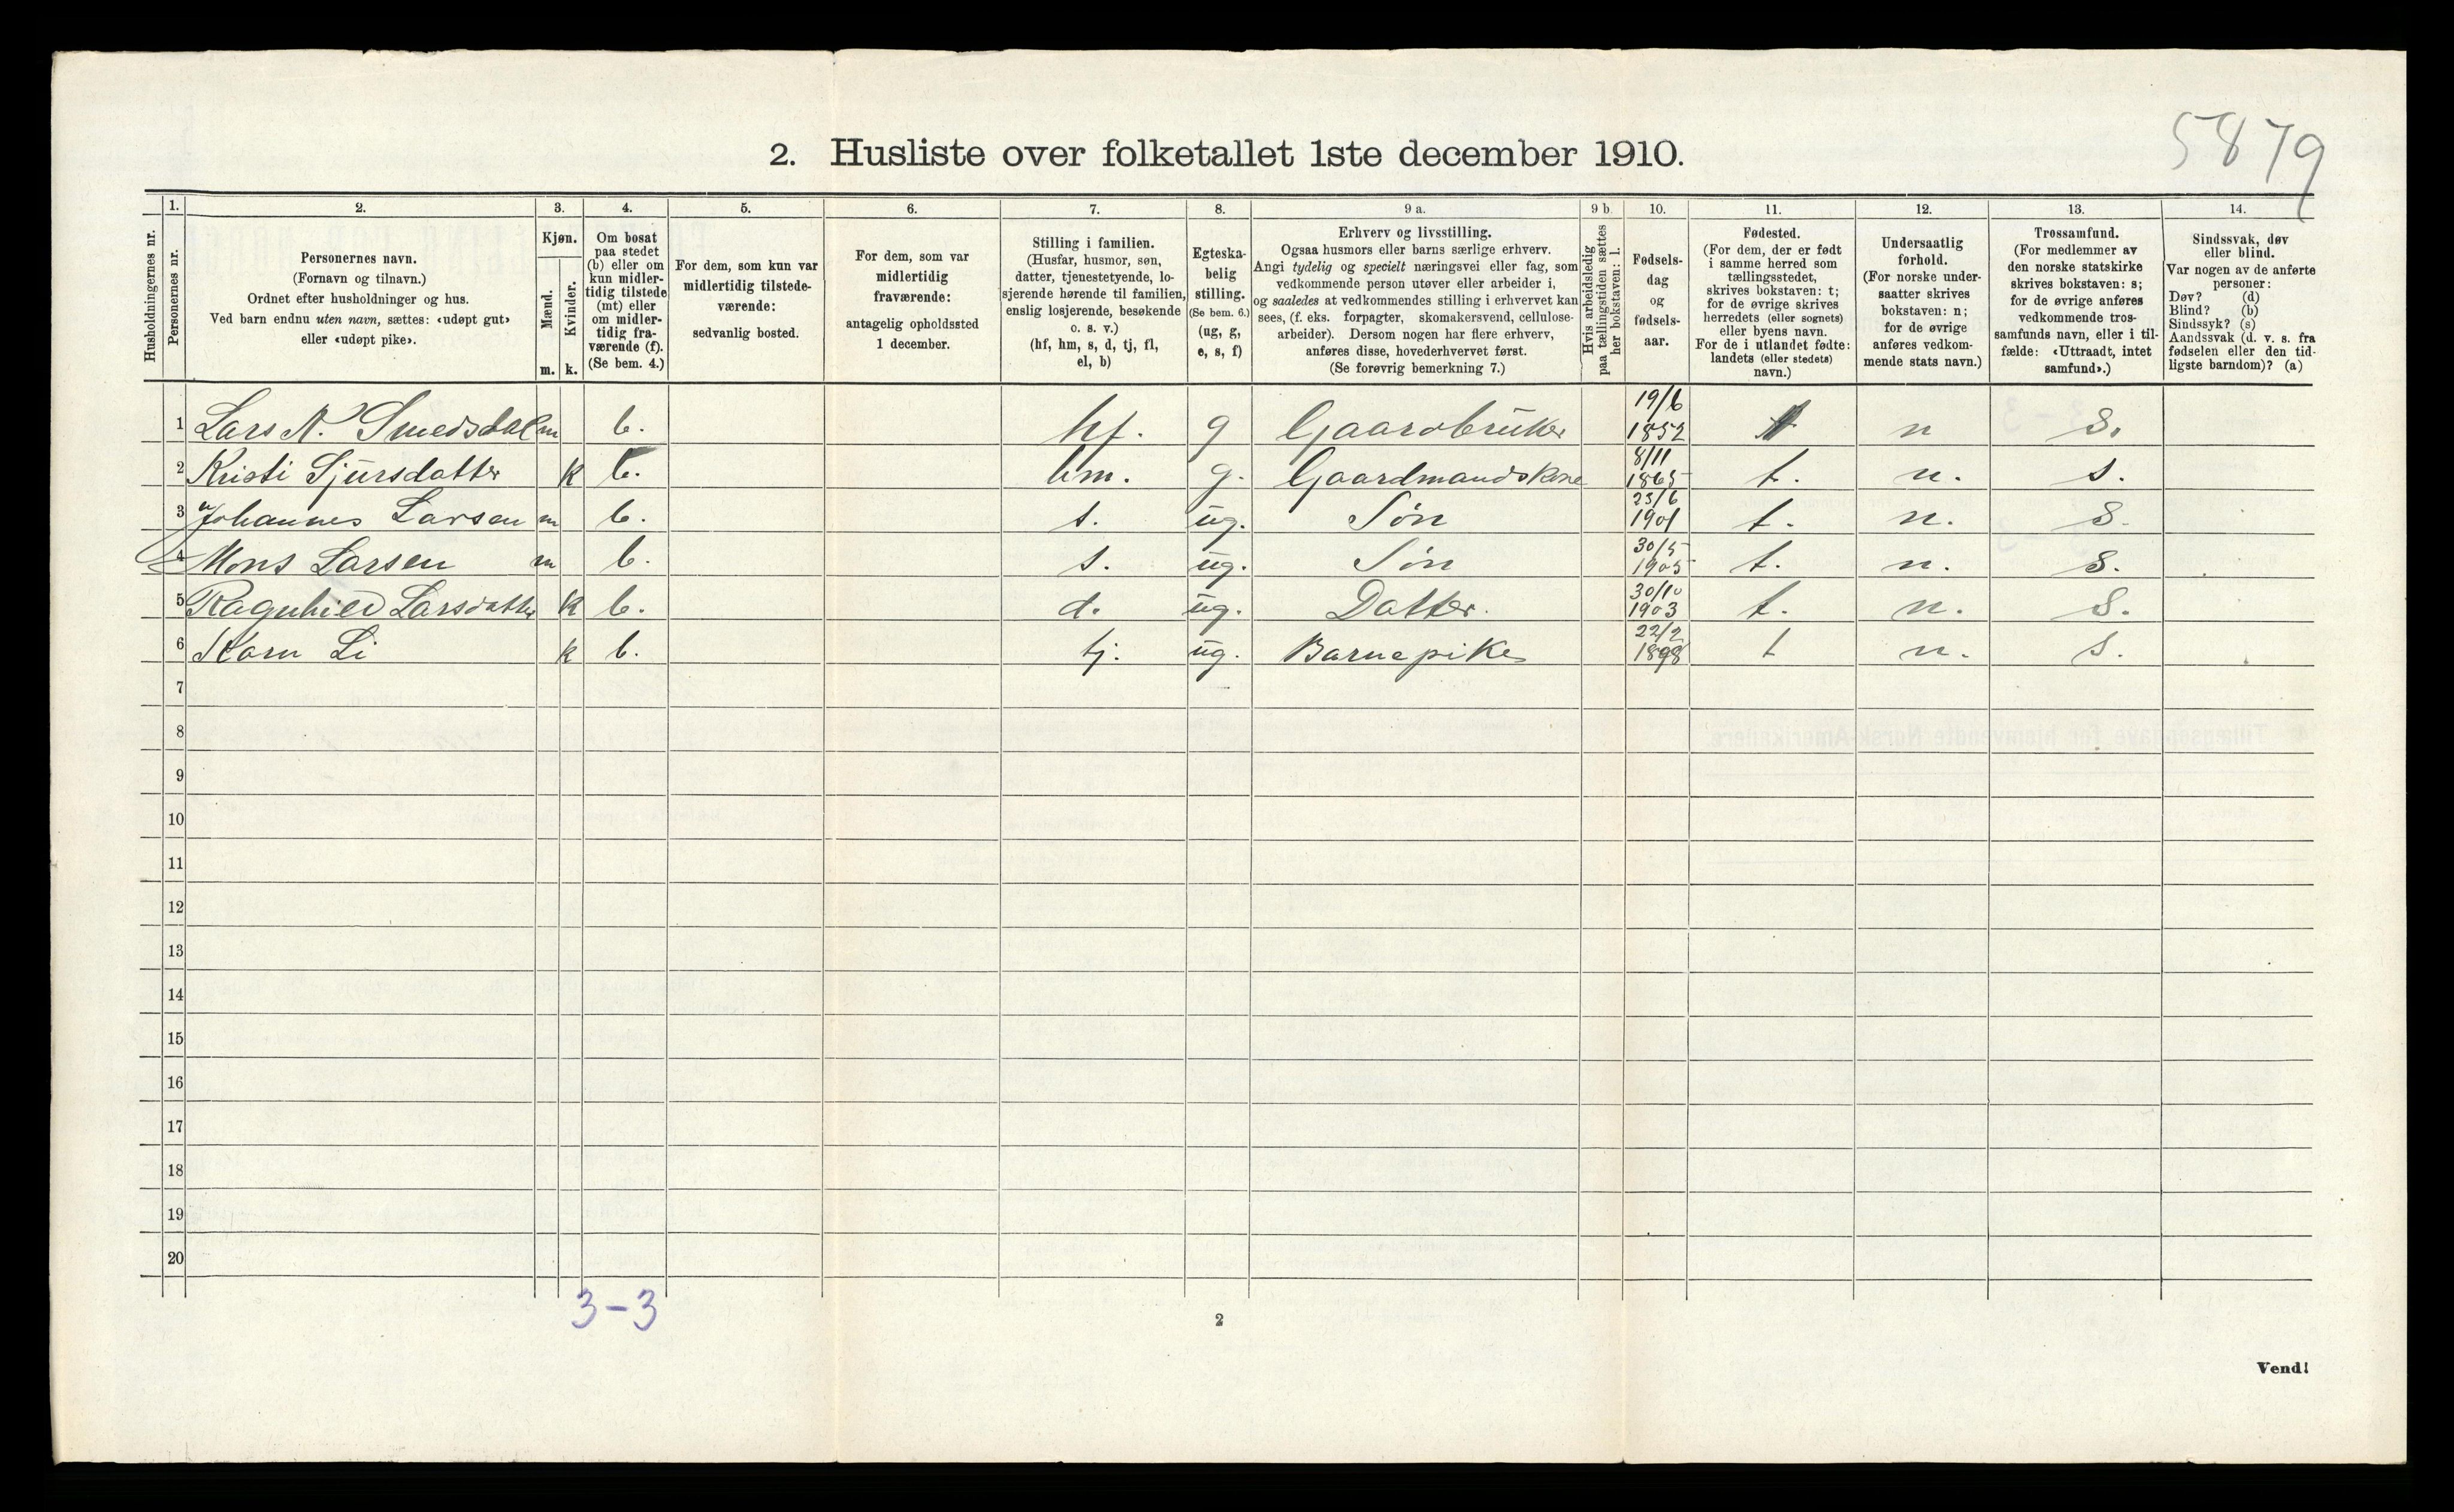 5879
2. Husliste over folketallet 1ste december 1910.
Husholdningernes nr.
1.
Personernes nr.
2.
Personernes navn.
(Fornavn og tilnavn.)
Ordnet efter husholdninger og hus.
Ved barn endnu uten navn, sættes: «udøpt gut»
eller «udøpt pike».
3.
Kjøn.
Mænd.
Kvinder.
m. k.
4.
Om bosat
paa stedet
(b) eller om
kun midler-
tidig tilstede
(mt) eller
om midler-
tidig fra-
værende (f).
(Se bem. 4.)
5.
For dem, som kun var
midlertidig tilstede-
værende:
sedvanlig bosted.
6.
For dem, som var
midlertidig
fraværende:
antagelig opholdssted
1 december.
7.
Stilling i familien.
(Husfar, husmor, søn,
datter, tjenestetyende, lo-
sjerende hørende til familien,
enslig losjerende, besøkende
o. s. v.)
(hf, hm, s, d, tj, fl,
el, b)
8.
Egteska-
belig
stilling.
(Se bem. 6.)
(ug, g,
e, s, f)
9 a.
Erhverv og livsstilling.
Ogsaa husmors eller barns særlige erhverv.
Angi tydelig og specielt næringsvei eller fag, som
vedkommende person utøver eller arbeider i,
og saaledes at vedkommendes stilling i erhvervet kan
sees, (f. eks. forpagter, skomakersvend, cellulose-
arbeider). Dersom nogen har flere erhverv,
anføres disse, hovederhvervet først.
(Se forøvrig bemerkning 7.)
9 b.
Hvis arbeidsledig
paa tællingstiden sættes
her bokstaven: l.
10.
Fødsels-
dag
og
fødsels-
aar.
11.
Fødested.
(For dem, der er født
i samme herred som
tællingsstedet,
skrives bokstaven: t;
for de øvrige skrives
herredets (eller sognets)
eller byens navn.
For de i utlandet fødte:
landets (eller stedets)
navn.)
12.
Undersaatlig
forhold.
(For norske under-
saatter skrives
bokstaven: n;
for de øvrige
anføres vedkom-
mende stats navn.)
13.
Trossamfund.
(For medlemmer av
den norske statskirke
skrives bokstaven: s;
for de øvrige anføres
vedkommende tros-
samfunds navn, eller i til-
fælde: «Uttraadt, intet
samfund».)
14.
Sindssvak, døv
eller blind.
Var nogen av de anførte
personer:
Døv? (d)
Blind? (b)
Sindssyk? (s)
Aandssvak (d. v. s. fra
fødselen eller den tid-
ligste barndom)? (a)
1 Lars N. Smedsdal m b. hf. g Gaardbruker 19/6 1852 t n s.
2 Kristi Sjursdatter k b. hm. g. Gaardmandskone 8/11 1865 t. n. s.
3 Johannes Larsen m b. s. ug. Søn 23/6 1901 t. n. s.
4 Mons Larsen m b. s. ug. Søn 30/5 1905 t. n. s.
5 Ragnhild Larsdatter k b. d. ug. Datter. 30/10 1903 t. n. s.
6 Karn Li k b. tj. ug. Barnepike 22/2 1898 t n. s.
7
8
9
10
11
12
13
14
15
16
17
18
19
20
3-3
2
Vend!